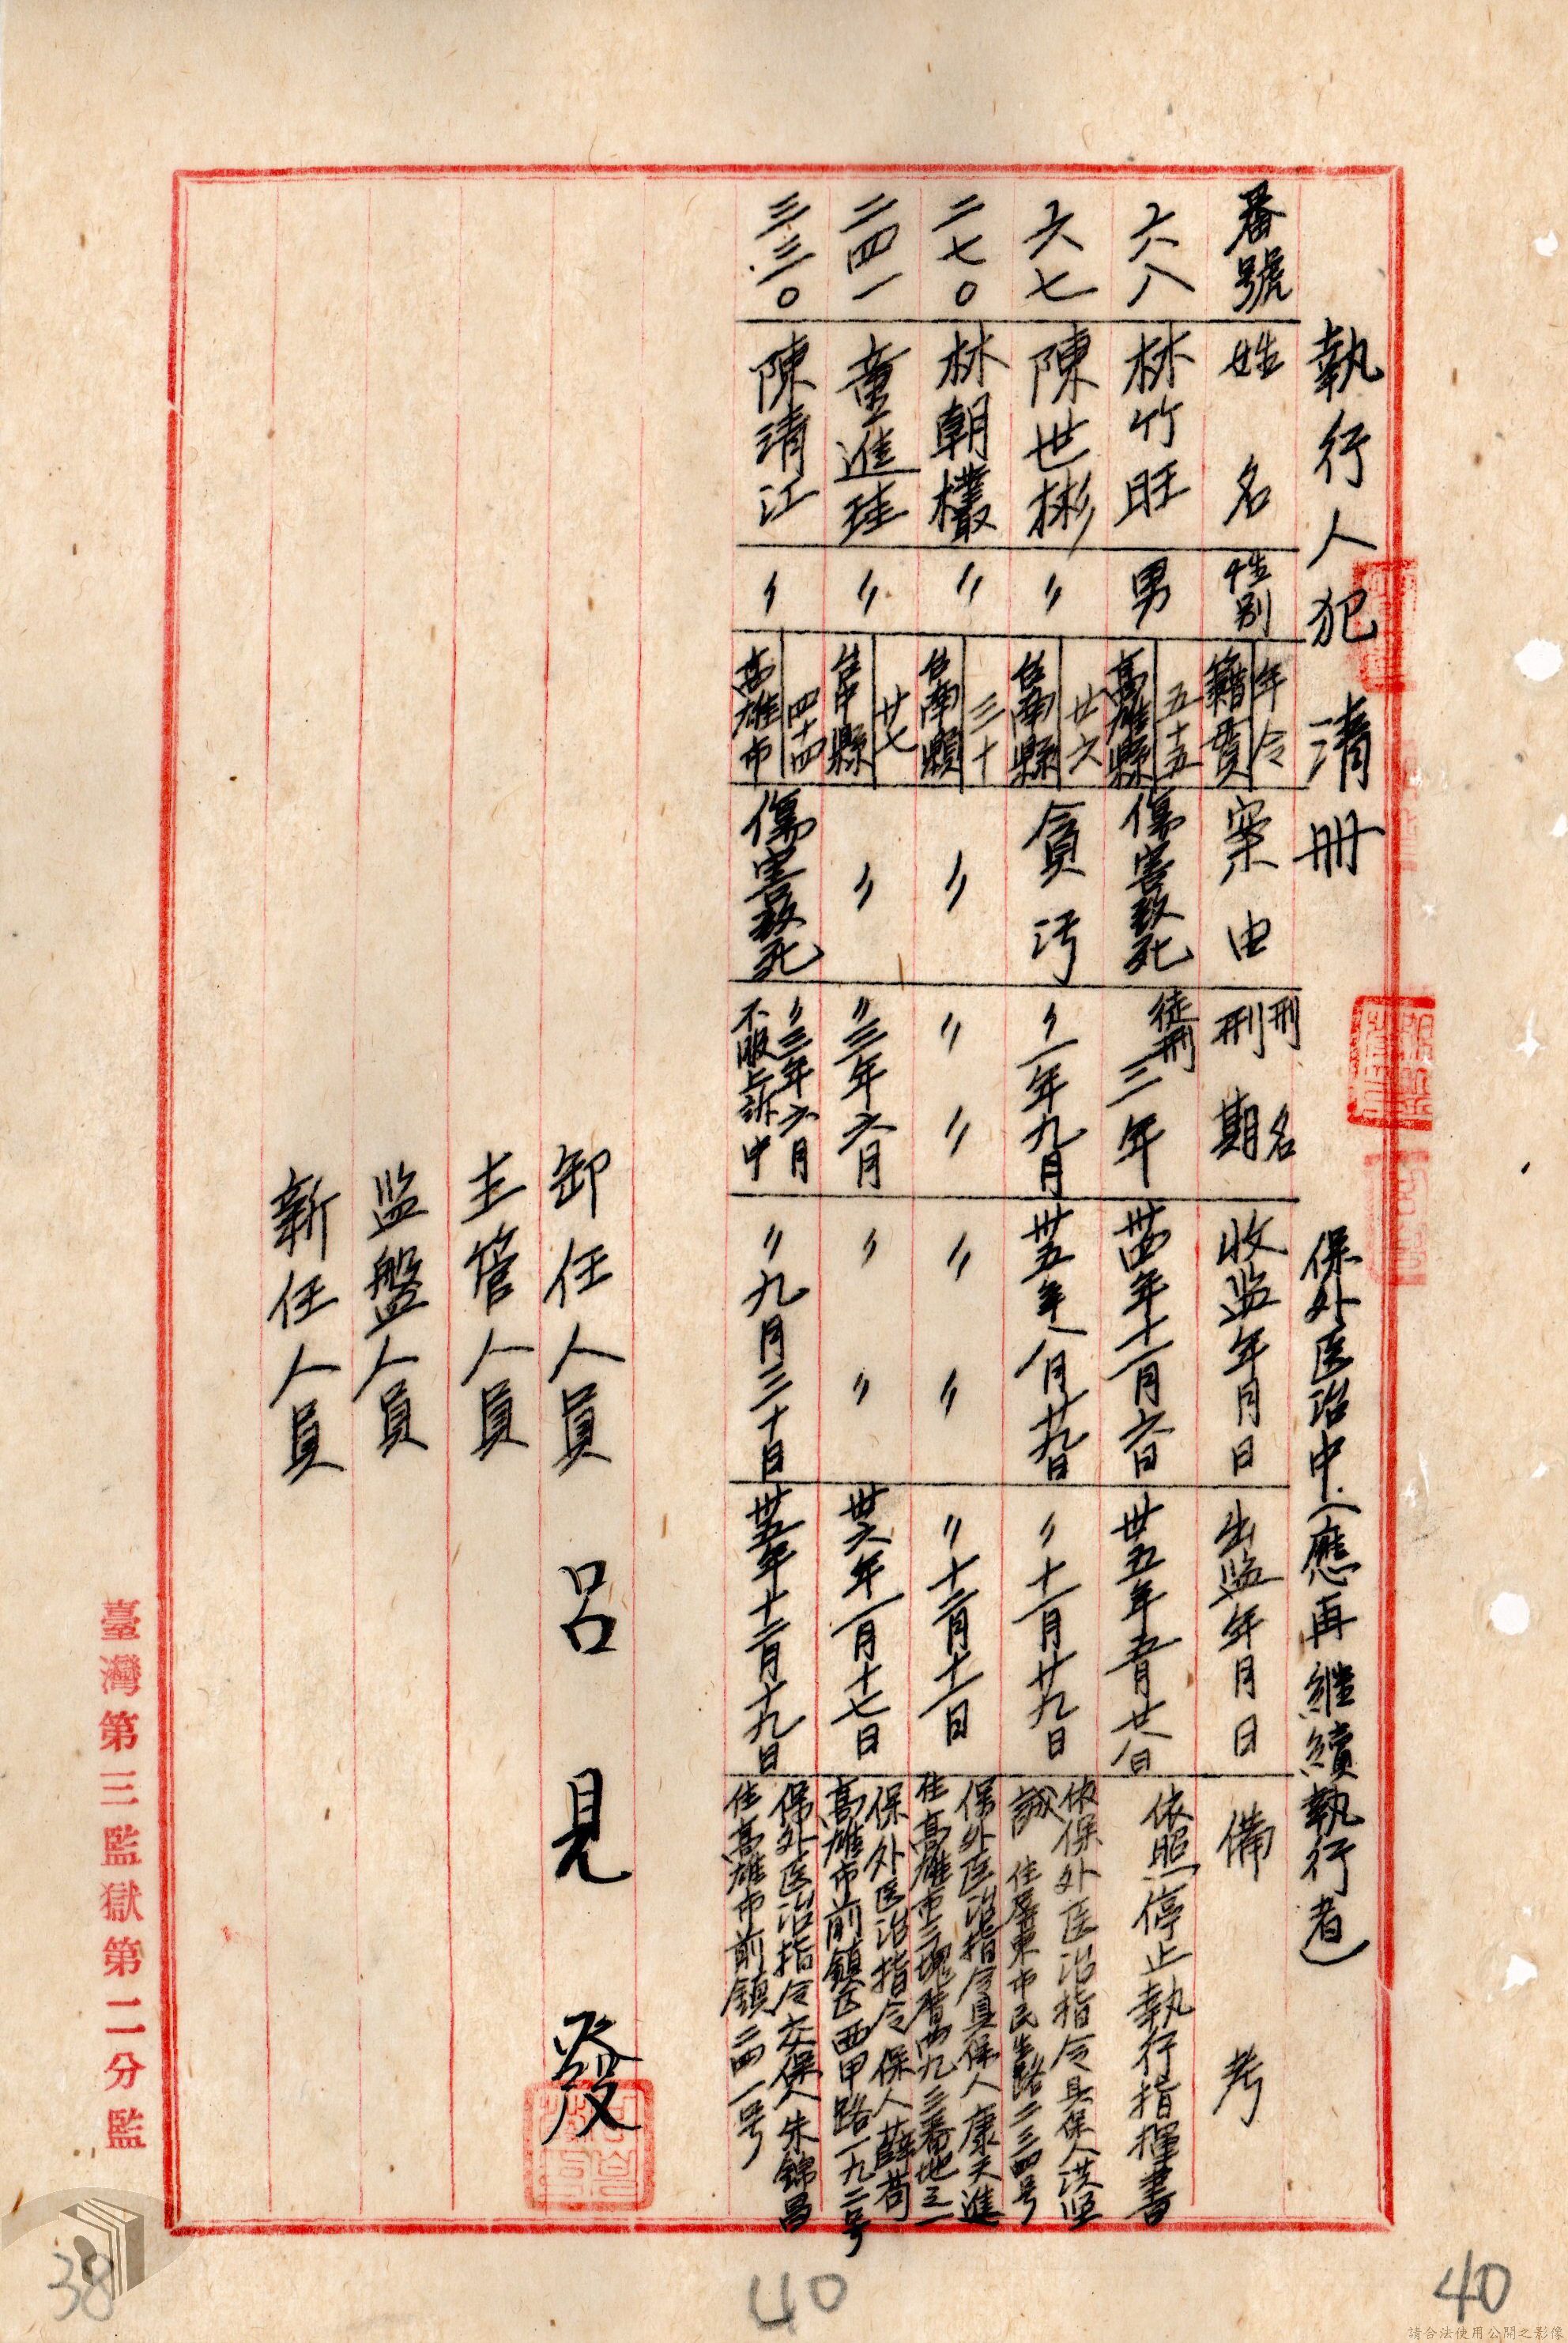 執行人犯清冊　保外医治中（應再継續執行者）
番號　姓名　性別　年令　籍貫　案由　刑名　刑期　收监年月日　出监年月日　備考
六八　林竹旺　男　五十五　高雄縣　傷害致死　徒刑三年　卅四年十一月六日　卅五年五月廿八日　依照停止執行指揮書
六七　陳世彬　〃　廿六　台南縣　貪污　〃一年九月　卅五年八月廿九日　〃十一月廿九日　依保外医治指令具保人洪坚誠　住屏東市民生路二三四号
二七〇　林朝欉　〃　三十　台南縣　〃　〃〃　〃〃　〃十二月十一日　保外医治指令具保人康天進　住高雄市三塊厝西九三番地之一
二四一　童進珪　〃　廿七　台中縣　〃　〃三年六月　〃〃　卅六年一月十七日　保外医治指令保人薛苟　高雄市前鎮区西甲路一九二号
三三〇　陳清江　〃　四十四　高雄市　傷害致死　〃三年六月　不服上訴中　〃九月三十日　卅五年十二月十九日　保外医治指令交保人朱錦昌　住高雄市前鎮二四一号
卸任人員　呂見發
主管人員
监盤人員
新任人員
臺灣第三監獄第二分監
38
40
40
請合法使用公開之影像